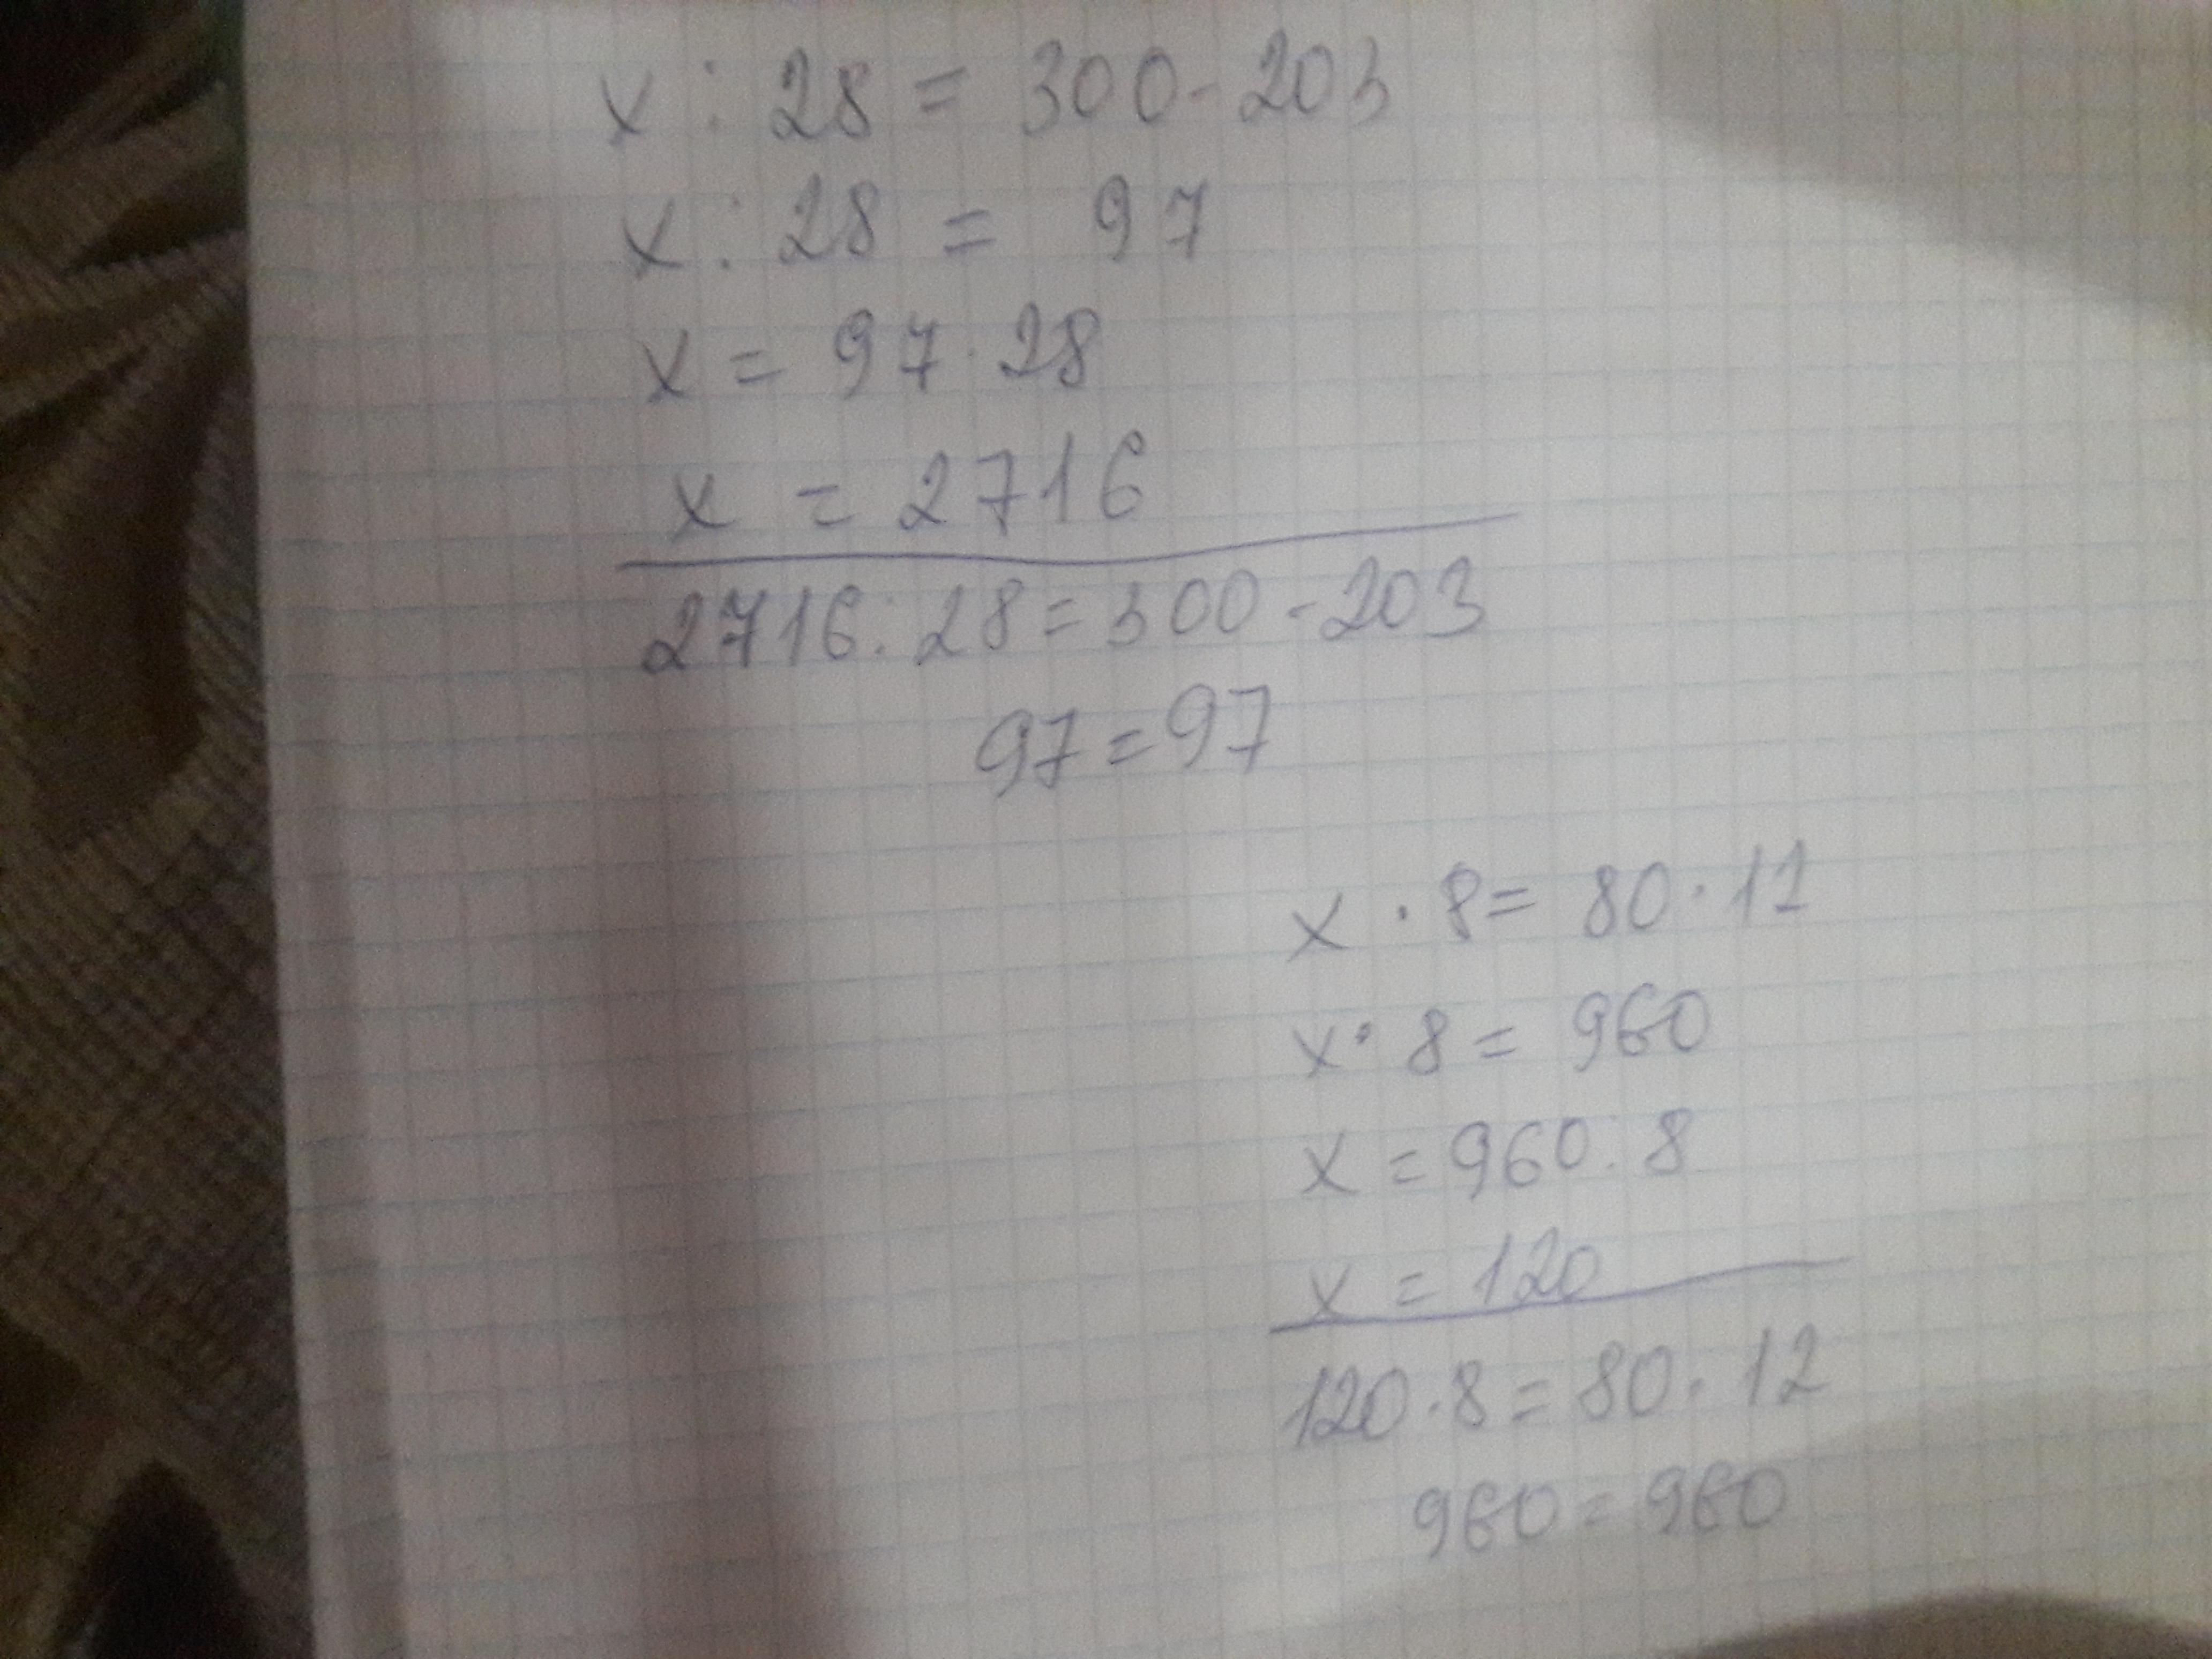 x : 28 = 300 - 203
x : 28 = 97
x = 97 · 28
x = 2716
2716 : 28 = 300 - 203
97 = 97
x · 8 = 80 · 12
x · 8 = 960
x = 960 : 8
x = 120
120 · 8 = 80 · 12
960 = 960